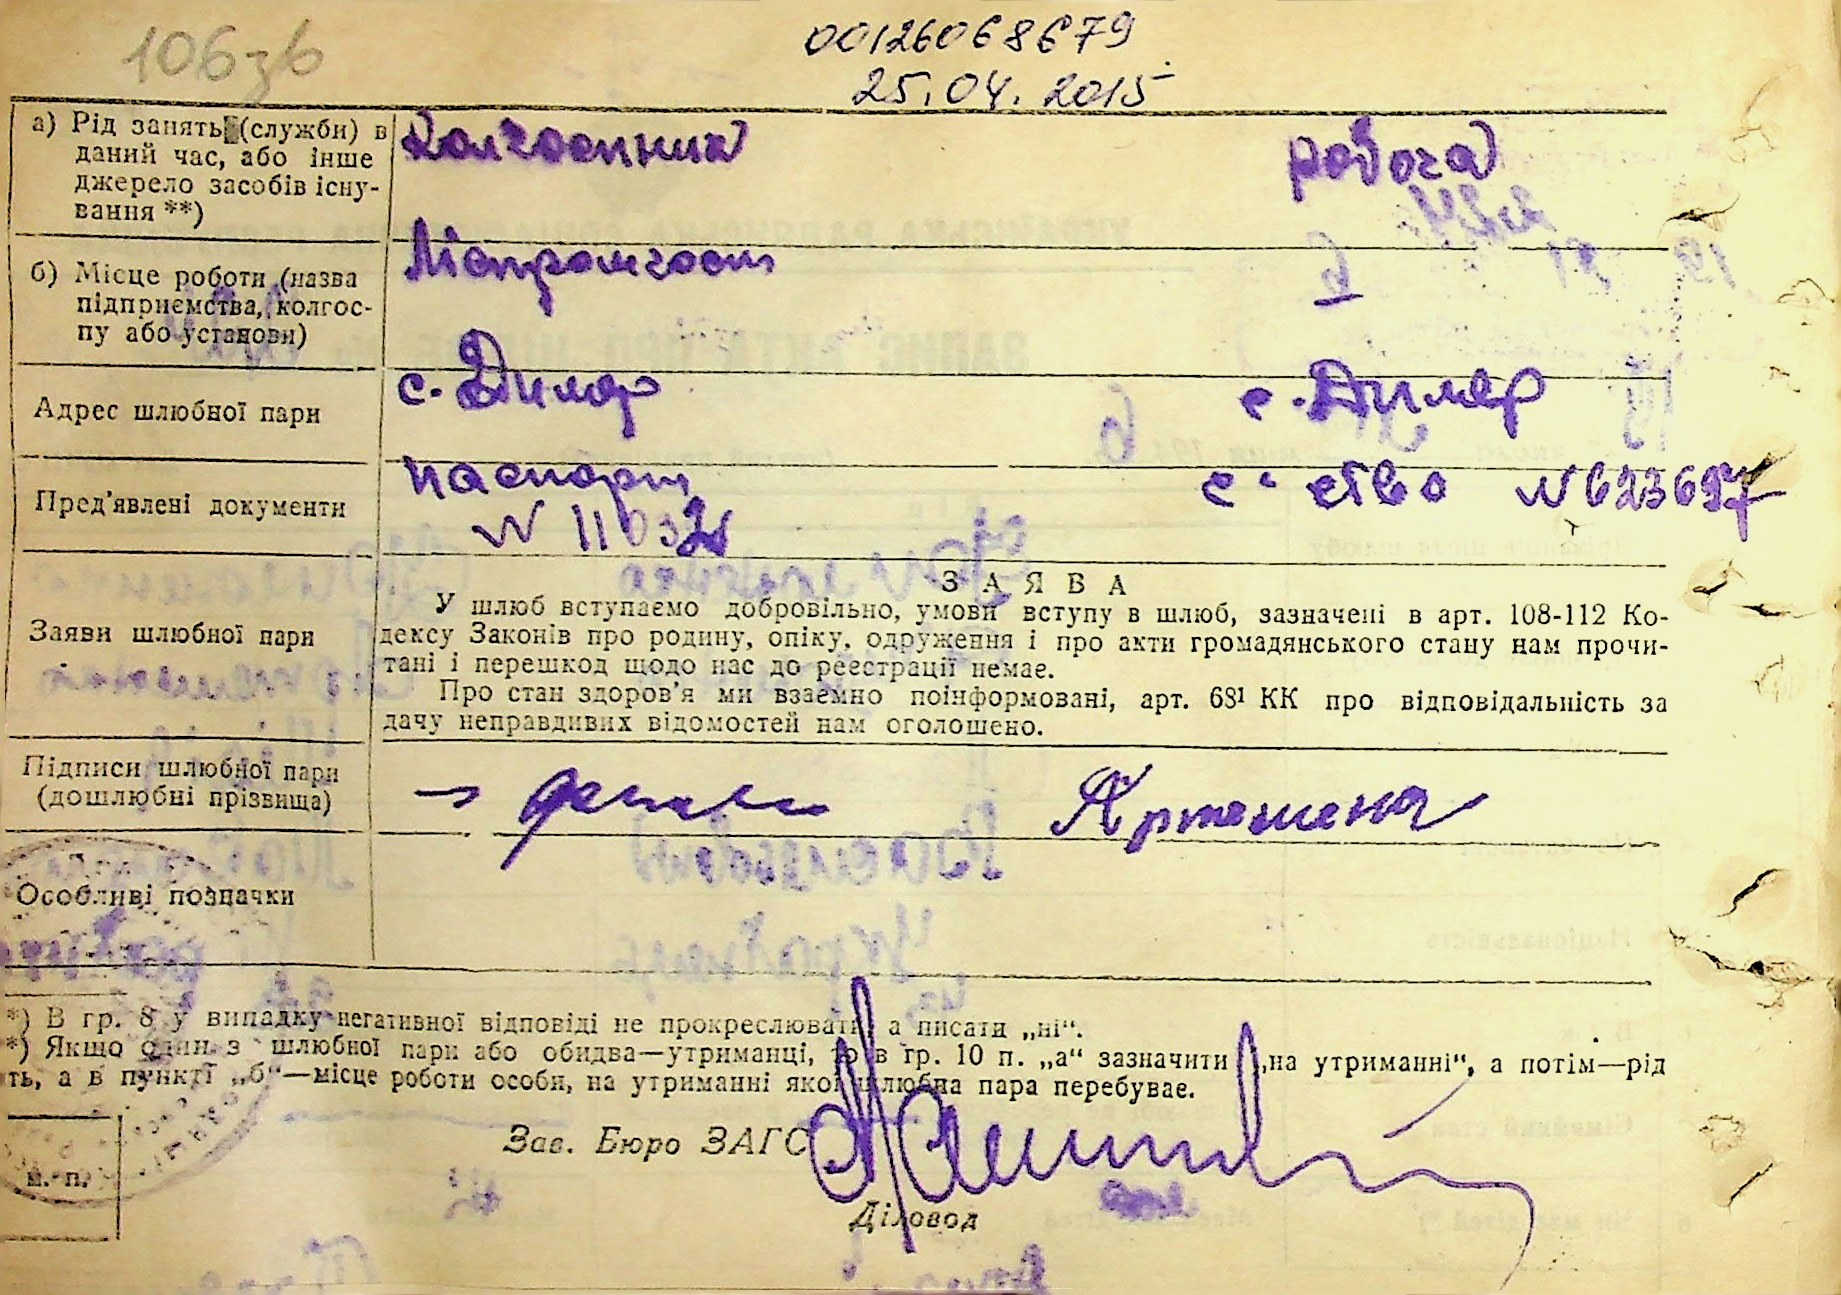 106зв
00126068679
25.04.2015
а) Рід занять (служби) в
даний час, або інше
джерело засобів існу-
вання **)
Колгоспник
робоча
б) Місце роботи (назва
підприємства, колгос-
пу або установи)
Ліспромгосп
Адрес шлюбної пари
с. Димер
с. Димер
Пред'явлені документи
паспорт
N 11032
с. ство N 623697
Заяви шлюбної пари
ЗАЯВА
У шлюб вступаємо добровільно, умови вступу в шлюб, зазначені в арт. 108-112 Ко-
дексу Законів про родину, опіку, одруження і про акти громадянського стану нам прочи-
тані і перешкод щодо нас до реєстрації немає.
Про стан здоров'я ми взаємно поінформовані, арт. 68¹ КК про відповідальність за
дачу неправдивих відомостей нам оголошено.
Підписи шлюбної пари
(дошлюбні прізвища)
Артемена
Особливі позначки
*) В гр. 8 у випадку негативної відповіді не прокреслювати, а писати „ні“.
*) Якщо один з шлюбної пари або обидва—утриманці, то в гр. 10 п. „а“ зазначити „на утриманні“, а потім—рід
ть, а в пункті „б“—місце роботи особи, на утриманні якої шлюбна пара перебуває.
Зав. Бюро ЗАГС
м. п.
Діловод